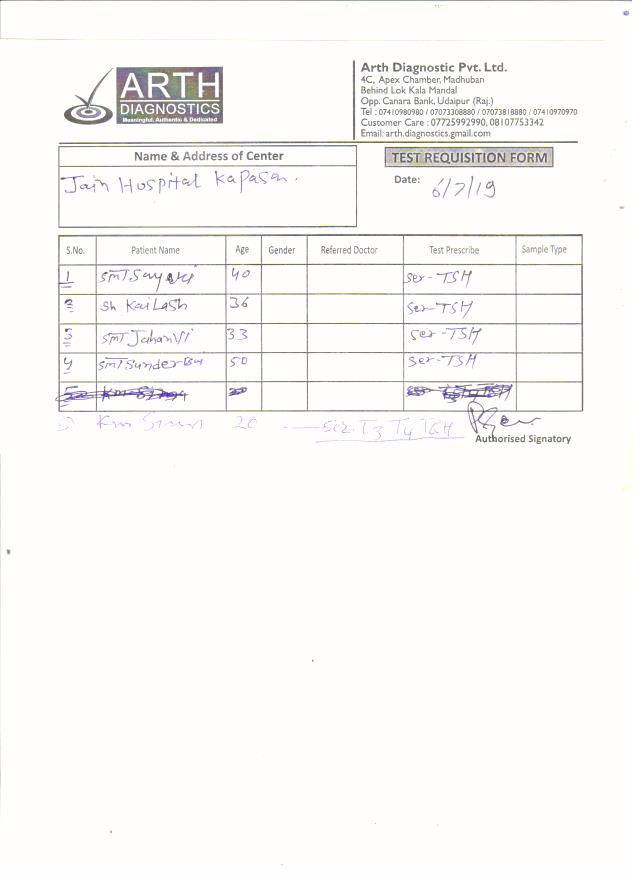 ARTH
DIAGNOSTICS
Meaningful, Authentic & Dedicated
Arth Diagnostic Pvt. Ltd.
4C, Apex Chamber, Madhuban
Behind Lok Kala Mandal
Opp. Canara Bank, Udaipur (Raj.)
Tel : 07410980980 / 07073308880 / 07073818880 / 07410970970
Customer Care : 07725992990, 08107753342
Email: arth.diagnostics.gmail.com
Name & Address of Center
Jain Hospital Kapasan.
TEST REQUISITION FORM
Date: 6/7/19
S.No. Patient Name Age Gender Referred Doctor Test Prescribe Sample Type
1 SMT. 40 Ser-TSH
2 Sh Kailash 36 Ser-TSH
3 SMT Jahanvi 33 Ser-TSH
4 SMT Sunder Bai 50 Ser-TSH
5 Km 20 Ser T3 T4 TSH
Authorised Signatory